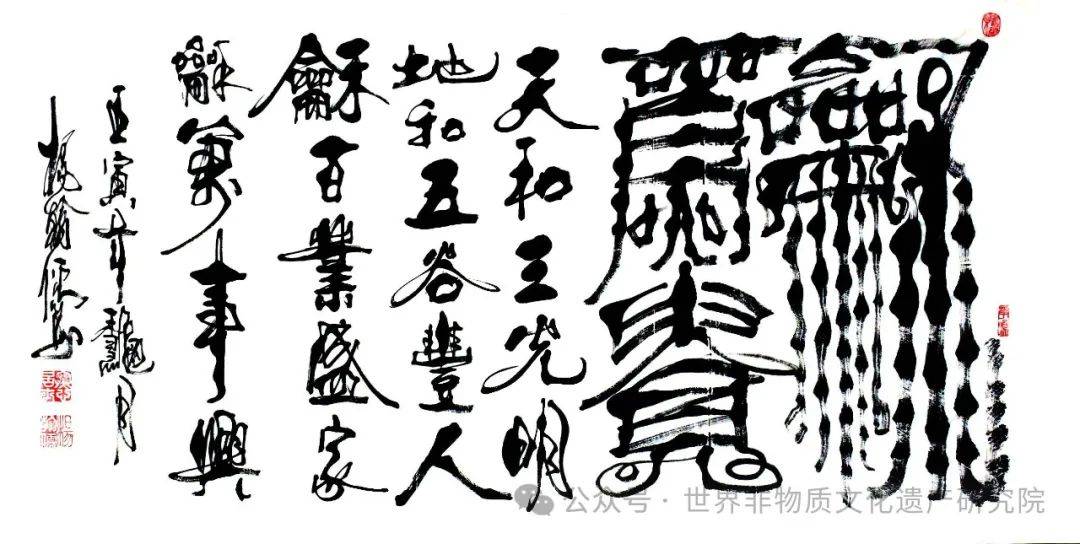 龢
天和三光明
地和五谷豐人
龢百業盛家
龢萬事興
壬寅年龝月
翰儒書
公众号 · 世界非物质文化遗产研究院